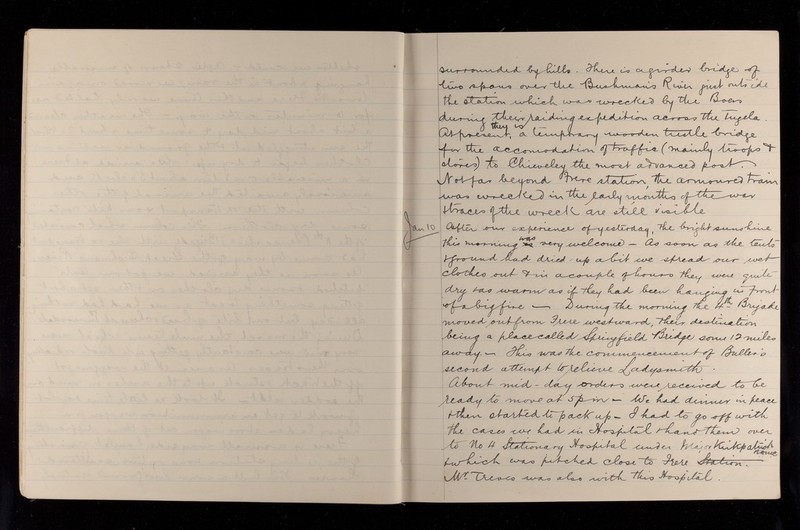 surrounded by hills. There is a girder bridge of
two spans over the Bushmans River just outside
the station which was wrecked by the Boers
during their raiding expedition across the Tugela.
At present, they is a temporary wooden trestle bridge
for the accomodation of traffic (mainly troops &
stores) to Chieveley the most advanced post.
Not far beyond Frere station, the armoured train
was wrecked in the early months of the war
& traces of the wreck are still visible
Jan 10 After our experience of yesterday, the bright sunshine
this morning was very welcome - As soon as the tents
& ground had dried up a bit we spread our wet
clothes out & in a couple of hours they were quite
dry & as warm as if they had been hanging in front
of a big fire - During the morning the 4th Brigade
moved out from Frere westward, their destination
being a place called Springfield Bridge some 12 miles
away - This was the commencement of Buller's
second attempt to relieve Ladysmith.
About mid-day orders were received to be
ready to move at 5 pm - We had dinner in peace
& then started to pack up - I had to go off with
the cases we had in Hospital & hand them over
to No 4 Stationary Hospital under Major Kirkpatrick
& which was pitched close to Frere Station.
Mr Treves was also with this Hospital.